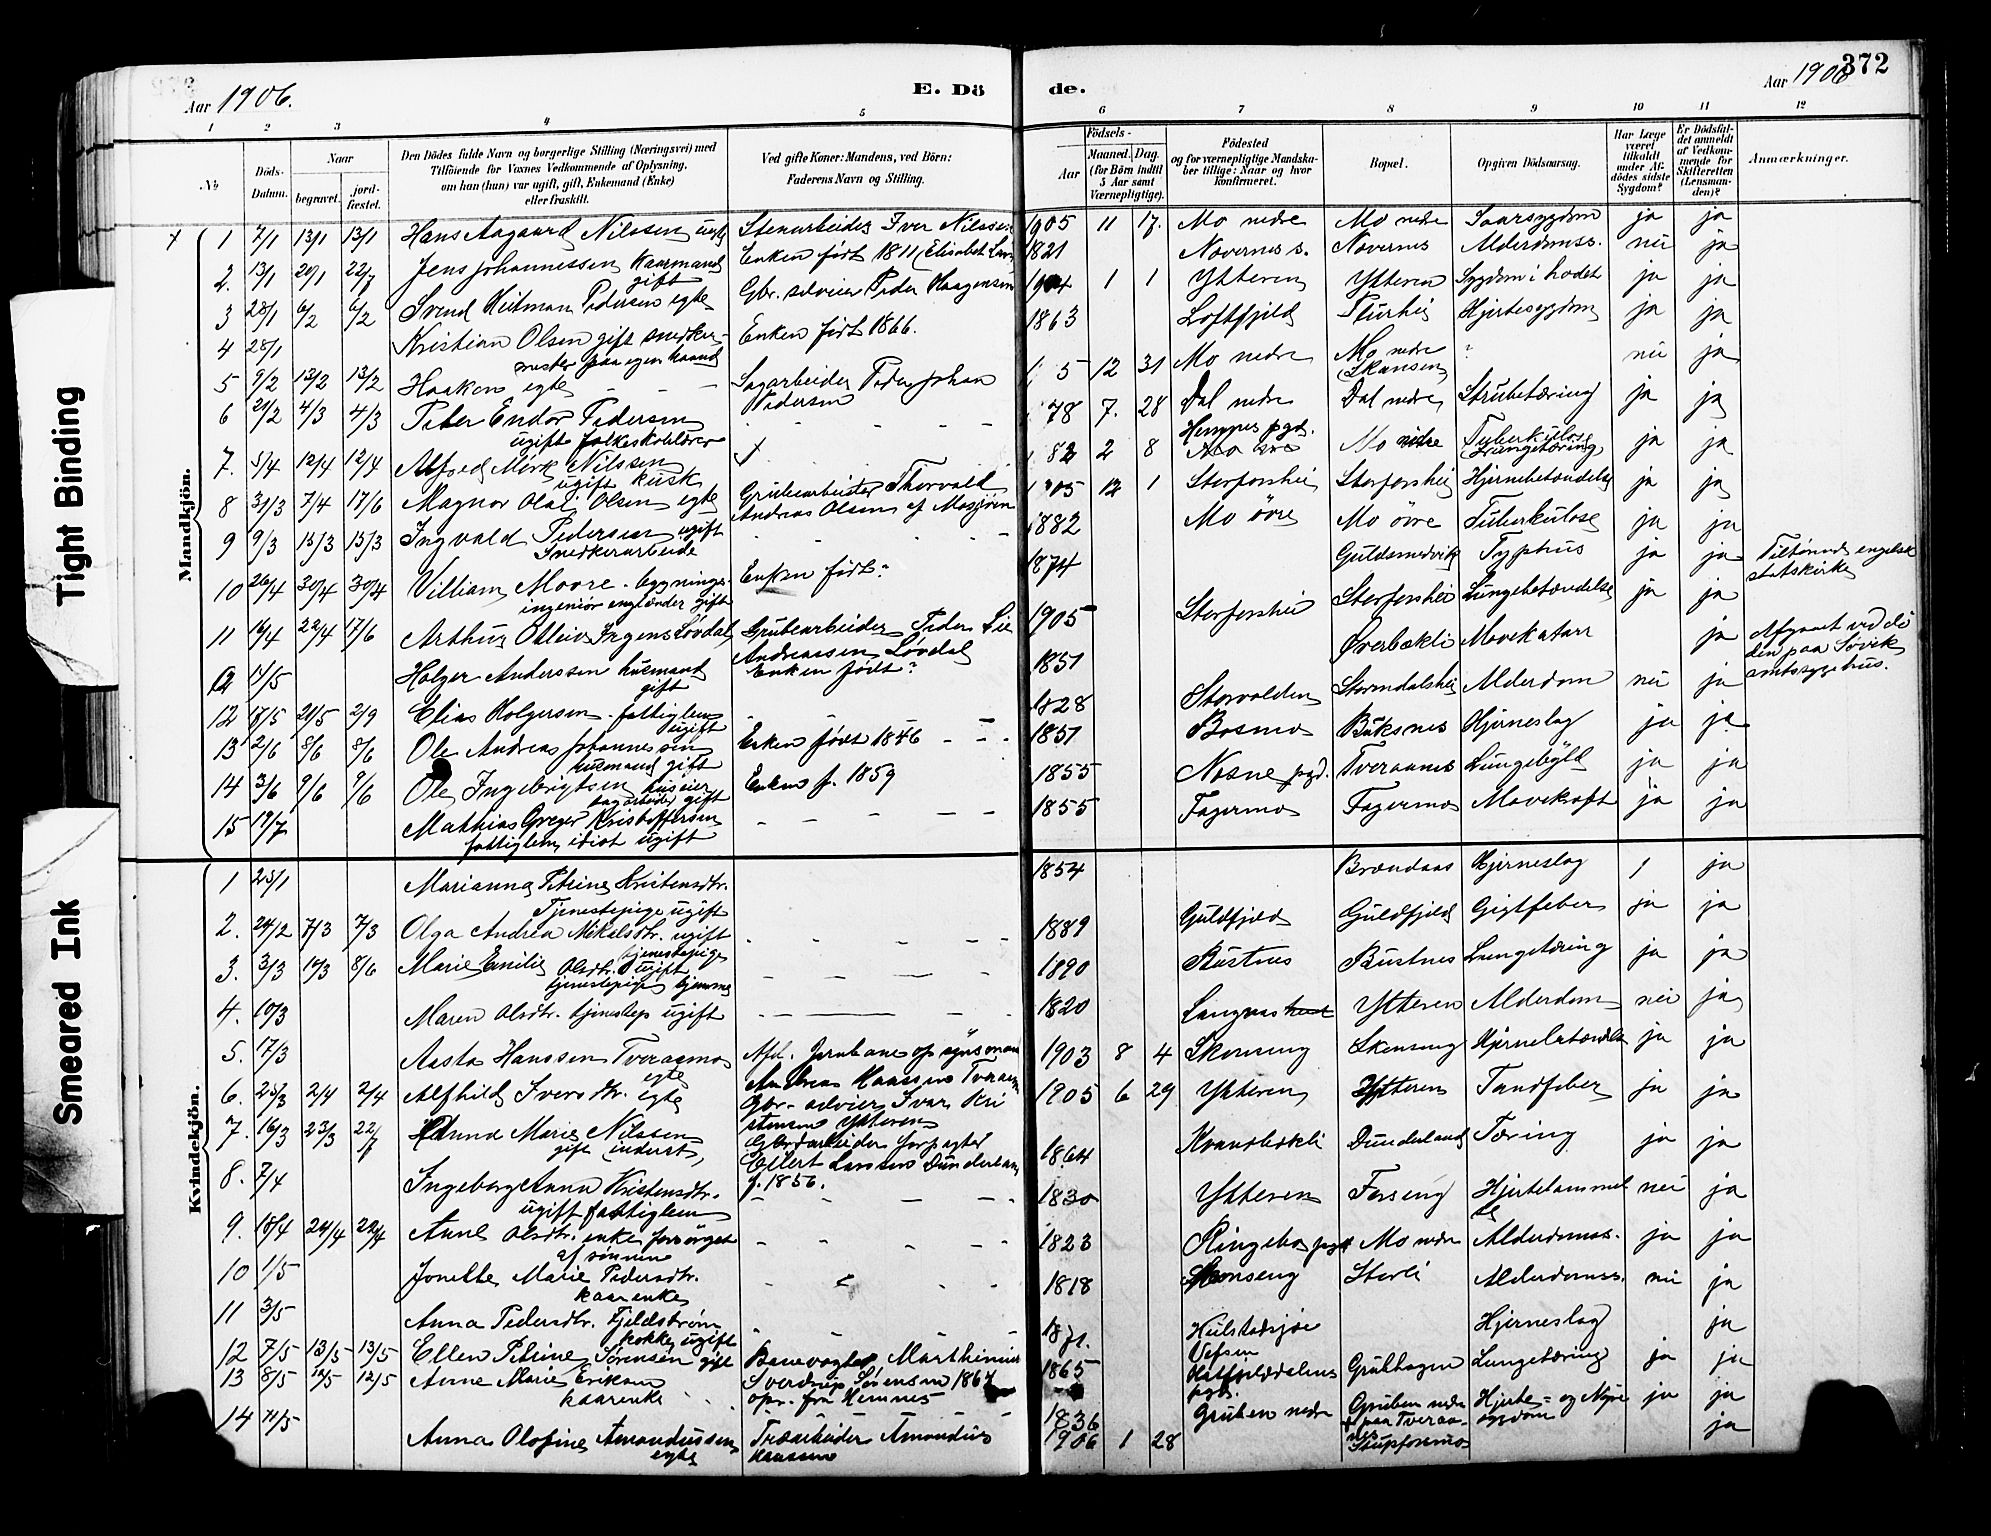 Tight Binding
Smeared Ink
Aar 1906.
E. Dö
de.
Aar 1906
372
1 2 3 4 5 6 7 8 9 10 11 12
No
Döds-Datum.
Naar
begravet.
jord-fæstet.
Den Dödes fulde Navn og borgerlige Stilling (Næringsvei) med
Tilföiende for Voxnes Vedkommende af Oplysning,
om han (hun) var ugift, gift, Enkemand (Enke)
eller fraskilt.
Ved gifte Koner: Mandens, ved Börn:
Faderens Navn og Stilling.
Födsels-
Aar
Maaned.
Dag.
(for Börn indtil
5 Aar samt
Værnepligtige).
Födested
og for værnepligtige Mandska-
ber tillige: Naar og hvor
konfirmeret.
Bopæl.
Opgiven Dödsaarsag.
Har Læge
været
tilkaldt
under Af-
dödes sidste
Sygdom?
Er Dödsfal-
det anmeldt
af Vedkom-
mende for
Skifteretten
(Lensman-
den)?
Anmærkninger.
Mandkjön.
1 7/1 13/1 13/1 Hans Aagaard Nilssen egte Stenarbeider Iver Nilssen 1905 11 17. Mo nedre Mo nedre Saarsygdom ja ja
2. 13/1 20/1 22/7 Jens Johannessen kaarmand gift Enken født 1811 (Elisabet 1821 Novernes s. Novernes Alderdomss. nei ja
3 28/1 6/2 6/2 Svend Heitman Pedersen egte Gbr. selveier Peder Haagensen 1904 1 1 Ytteren Ytteren Sygdom i hodet ja ja
4 28/1 Kristian Olsen gift snedker-
mester paa egen haand Enken født 1866. 1863 Loftfjeld Hjertesygdom ja ja
5 9/2 13/2 13/2 Haakon egte Sagarbeider Peder Johan
Pedersen 5 12 31 Mo nedre Mo nedre
(Skansen) ? nei ja
6 21/2 4/3 4/3 Peter Endor Pedersen
ugift folkeskolelærer 78 7. 28 Dal nedre Dal nedre Strubetæring ja ja
7. 5/4 12/4 12/4 Alfred Mörk Nilssen
ugift kusk 82 2 8 Hemnes pgd. Mo nedre Tuberkulose
(Lungetæring) ja ja
8 31/3 7/4 17/6 Magnor Olai Olsen egte Grubearbeider Thorvald
Andreas Olsen af Mosjöen 1905 12 1 Storforshei Storforshei Hjernebetændelse ja ja
9 9/3 15/3 15/3 Ingvald Pedersen ugift
Snedkerarbeide 1882 Mo övre Mo övre Tuberkulose ja ja
10 26/4 30/4 30/4 Villiam Moore. bygnings-
ingeniör englænder gift Enken født? 1874 Guldsmedvik Typhus ja ja Tilhörende engelsk
statskirke
11 16/4 22/4 17/6 Arthur Otleiv Jrgens Løvdal Grubearbeider Peder
Andreassen Løvdal 1905 Storforshei Storforshei Lungebetændelse ja ja
12 14/5 Holger Anderssen husmand
gift Enken født? 1851 Øverbækli Mavekatarr ja Afgaaet ved dö
den paa Søvik
amtssygehus.
12 17/5 21/5 2/9 Elias Holgersen. fattiglem
ugift 1828 Storvolden Stormdalshei Alderdom nei ja
13 2/6 8/6 8/6 Ole Andreas Johannessen
husmand gift Enken født 1846 1851 Bosmo Buksnes Hjerneslag ja ja
14 3/6 9/6 9/6 Ole Ingebrigtsen huseier
sagarbeider gift Enken f. 1859 1855 Nesne pgd. Tveraanes Lungebyld ja ja
15 19/7 Mathias Greger Kristoffersen
fattiglem, idiot ugift 1855 Fagermo Fagermo Mavekræft ja ja
Kvindekjön.
1 23/1 Marianna Petrine Kristensdtr.
Tjenestepige ugift 1854 Brændaas Hjerneslag 1 ja
2. 24/2 7/3 7/3 Olga Andrea Mikalsdtr. ugift
tjenestepige 1889 Guldfjeld Guldfjeld Gigtfeber ja ja
3. 3/3 10/3 8/6 Marie Emilie Olsdtr. ugift
tjenestepige hjemme 1890 Bustnes Bustnes Lungetæring ja ja
4. 10/3 Maren Olsdtr. tjenestep ugift 1820 Langvas Ytteren Alderdom nei ja
5. 17/3 Aasta Hanssen Tveraamo
egte Afd. Jernbaneopsynsmand
Andreas Hanssen 1903 8 4 Skonseng Skonseng Hjernebetændelse ja ja
6. 25/3 2/4 2/4 Alfhild Iversdtr. egte Gbr. selveier Ivar Kri
stensen Ytteren 1905 6 29 Ytteren Ytteren Tandfeber ja ja
7. 16/3 23/3 22/7 Marie Nilssen
gift inderst Gbrdarbeider forpagter
Ellert Larssen Dunderland
f. 1856. 1864 Kvandbækli Dunderland Tæring ja ja
8. 7/4 Ingeborg Anna Kristensdtr.
ugift fattiglem 1830 Ytteren Forseng Hjertelammel
se nei ja
9. 18/4 24/4 22/4 Anne Olsdtr. enke forsørget
af sønnen 1823 Ringebo pgd Mo nedre Alderdomss. ja ja
10 1/5 Jonette Marie Pedersdtr.
kaarenke 1818 Skonseng Storli Alderdomss. nei ja
11 3/5 Anna Pedersdtr. Fjeldstrøm
kokke ugift 1871. Hulstadsjøe
Vefsen Hjerneslag ja
12 7/5 13/5 13/5 Ellen Petrine Sørensen gift Banevogter Marthinius
Sverdrup Sørensen 1867
opr. fra Hemnes 1865 Hatfjelddalens
pgd. Grubhagen Lungetæring ja ja
13 8/5 12/5 12/5 Anne Marie Eriksen
kaarenke 1836 Gruben nedre Gruben nedre
paa Tveraa-
nes Hjerte- og Nyre
sygdom ja ja
14 11/5 Anna Olofine Amondussen
egte Træarbeider Amondus
Hanssen 1906 1 28 Stupforsmo ja